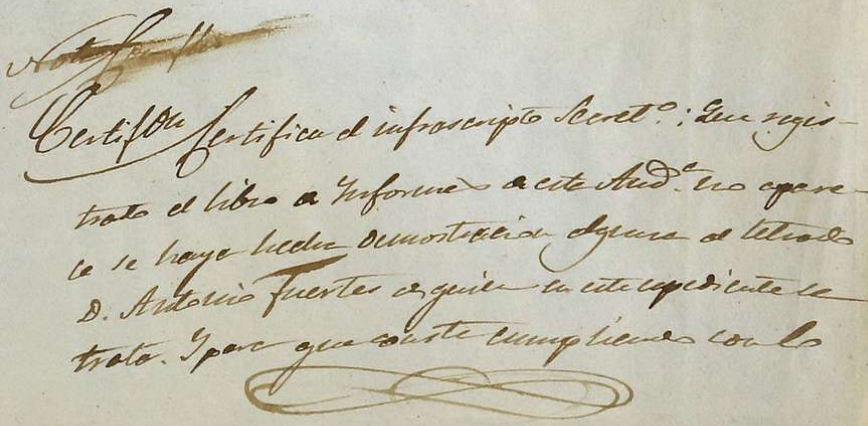 Nota
Certifon Certifica el infrascripto Secret.º: Que regis-
trado el libro de Informes de esta Aud.ª no apare-
ce se haya hecho demostracion alguna al letrado
D. Antonio Fuertes de quien en este expediente se
trata. Y para que conste cumpliendo con lo